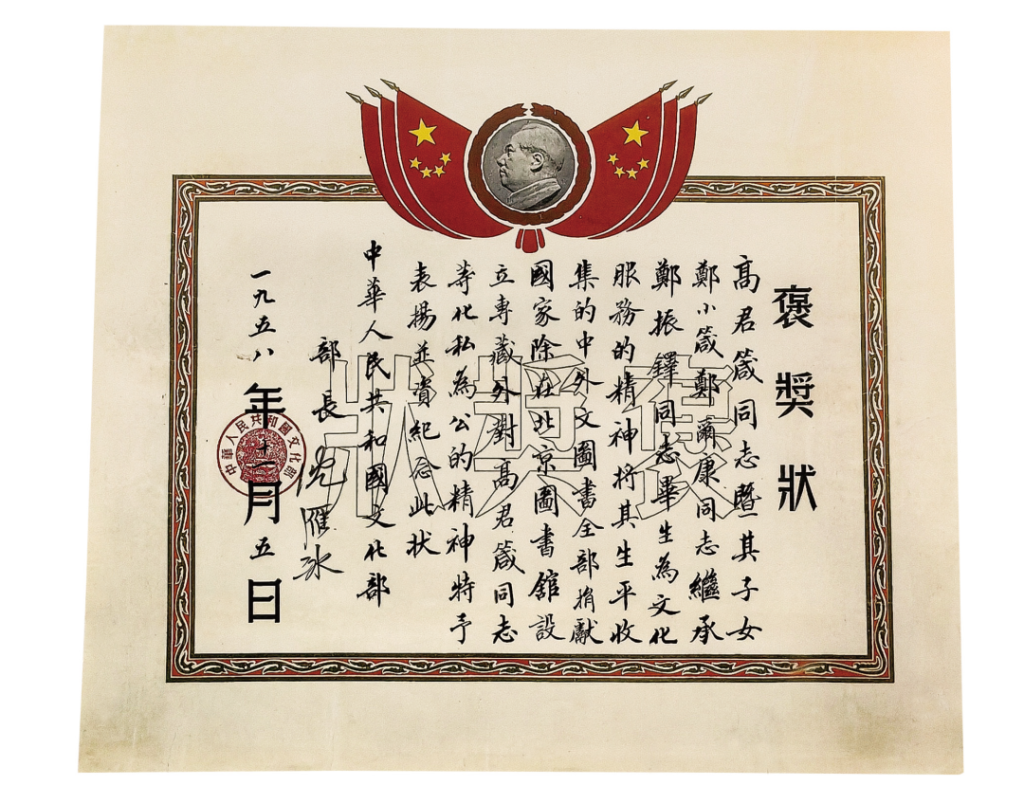 褒奖狀
高君箴同志暨其子女
鄭小箴鄭爾康同志繼承
鄭振鐸同志畢生為文化
服務的精神将其生平收
集的中外文圖書全部捐獻
國家除在北京圖書舘設
立專藏外對高君箴同志
等化私為公的精神特予
表揚並資紀念此状
中華人民共和國文化部
部長 沈雁冰
一九五八年十一月五日
中華人民共和國文化部
褒奖狀